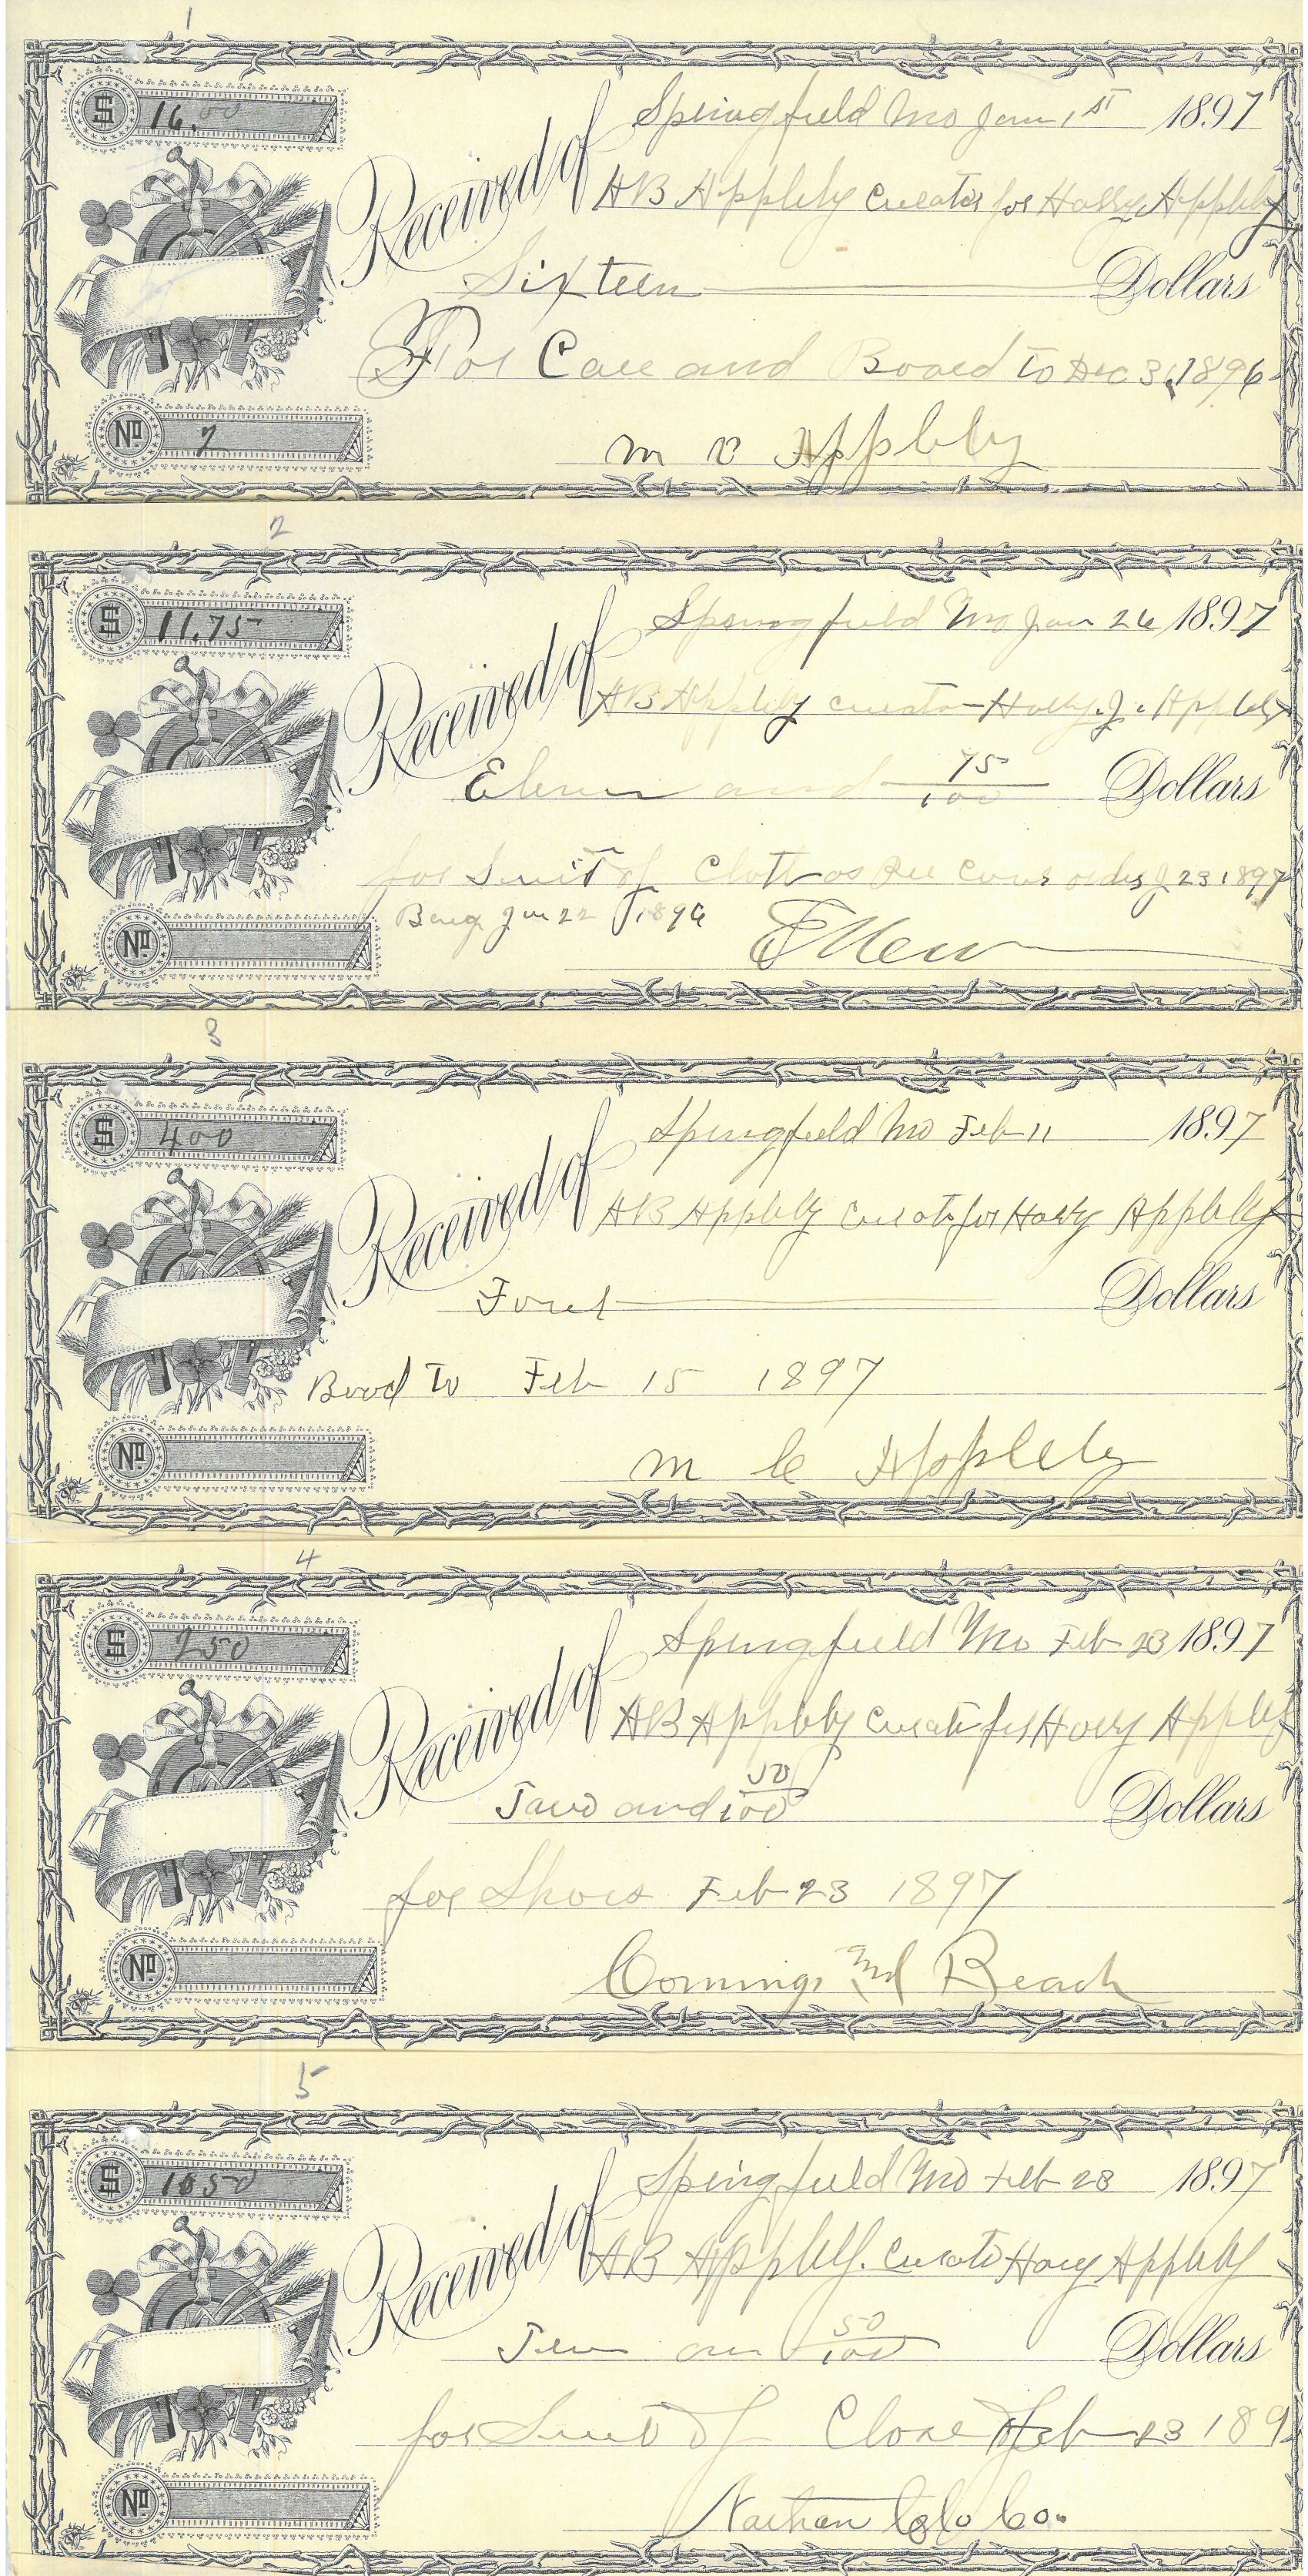 1
$ 16.00
Springfield Mo Jan 1st 1897
Received of AB Appleby Curator for Harry Appleby
Sixteen Dollars
For Care and Board to Dec 31, 1896
No 7
M C Appleby
2
$ 11.75
Springfield Mo Jan 26 1897
Received of AB Appleby Curator Harry J. Appleby
Eleven and 75/100 Dollars
for Suit of Cloth as Per Cour order J 23 1897
Jan 22 1896
No
3
$ 400
Springfield Mo Feb 11 1897
Received of AB Appleby Curator for Harry Appleby
Four Dollars
Bord to Feb 15 1897
No
M C Appleby
4
$ 250
Springfield Mo Feb 23 1897
Received of AB Appleby Curator for Harry Appleby
Two and 50/100 Dollars
for Shoes Feb 23 1897
No
Comings and Beach
5
$ 1050
Springfield Mo Feb 23 1897
Received of AB Appleby. Curator Harry Appleby
Ten an 50/100 Dollars
for Suit of Close Feb 23 189
No
Nathan Clo Co.